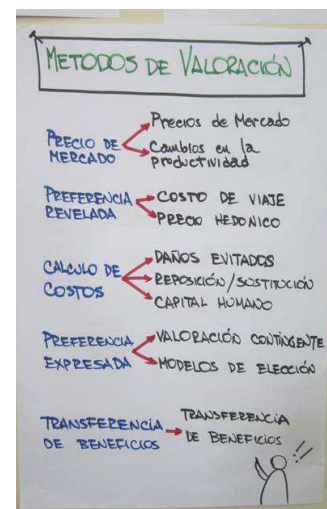 METODOS DE VALORACIÓN
PRECIO DE
MERCADO
Precios de Mercado
Cambios en la
productividad
PREFERENCIA
REVELADA
COSTO DE VIAJE
PRECIO HEDONICO
CALCULO DE
COSTOS
DAÑOS EVITADOS
REPOSICIÓN/SUSTITUCIÓN
CAPITAL HUMANO
PREFERENCIA
EXPRESADA
VALORACIÓN CONTINGENTE
MODELOS DE ELECCIÓN
TRANSFERENCIA
DE BENEFICIOS
TRANSFERENCIA
DE BENEFICIOS
!!